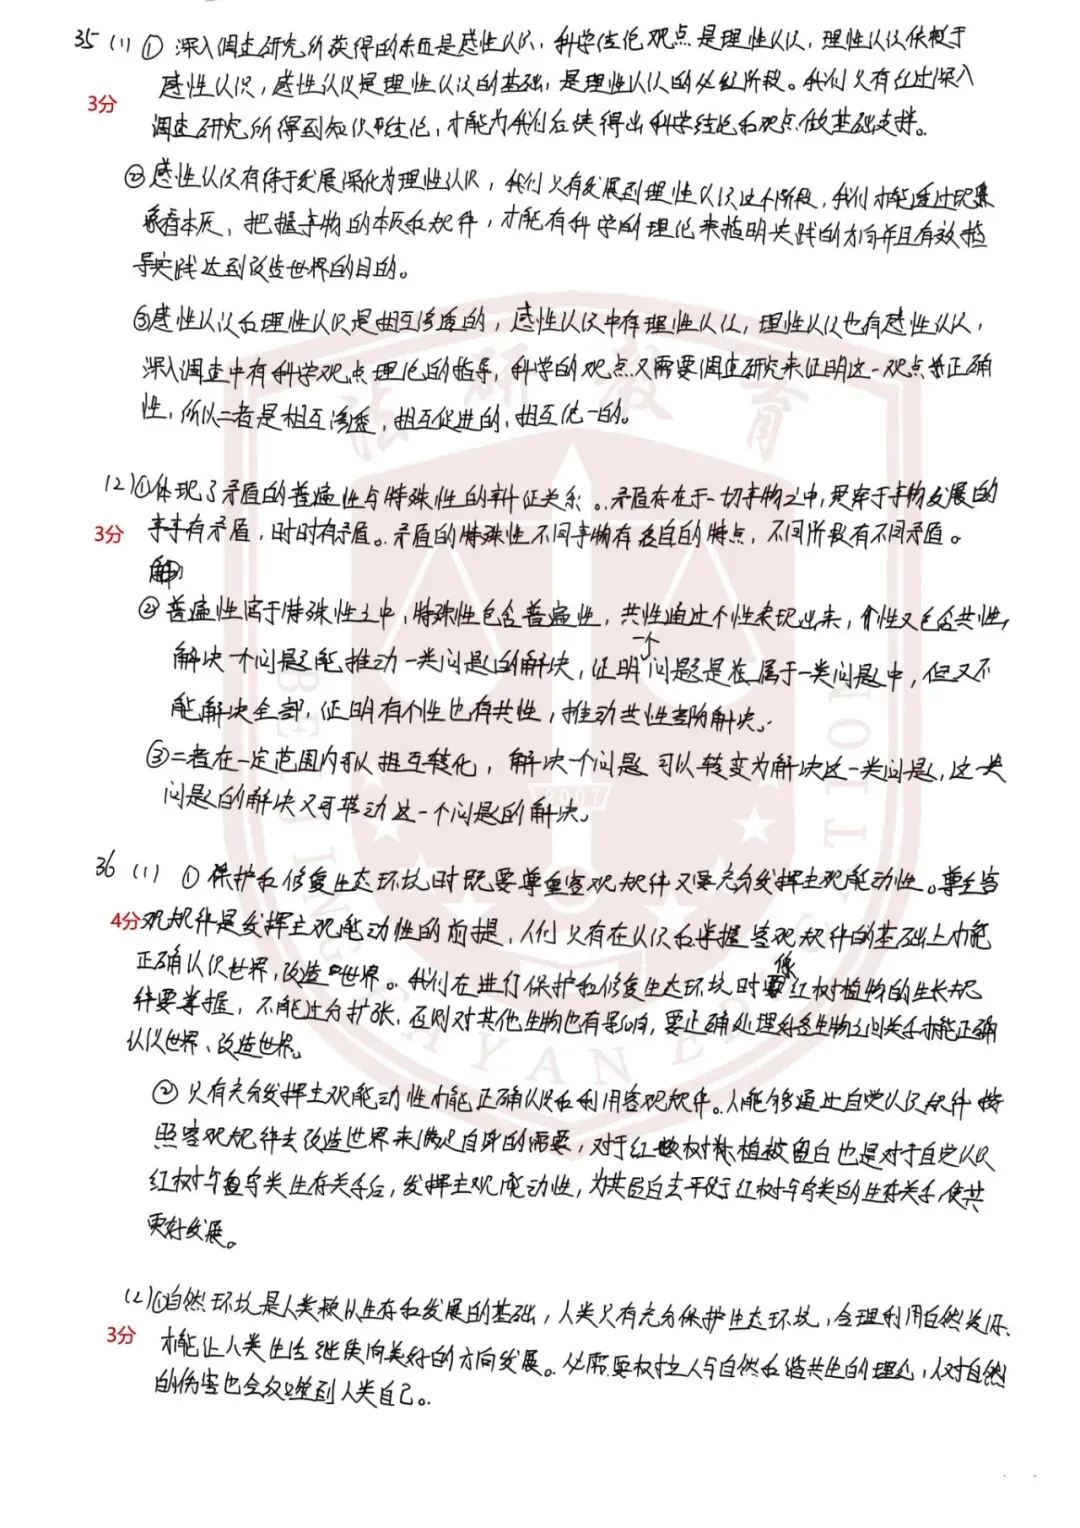 35 (1) ① 深入调查研究所获得的东西是感性认识，科学结论观点是理性认识，理性认识依赖于
感性认识，感性认识是理性认识的基础，是理性认识的必经阶段。我们只有经过深入
3分
调查研究所得到知识和结论，才能为我们后续得出科学结论和观点做基础支撑。
②感性认识有待于发展深化为理性认识，我们只有发展到理性认识这个阶段，我们才能透过现象
看本质，把握事物的本质和规律，才能有科学的理论来指明实践的方向并且有效指
导实践达到改造世界的目的。
③感性认识和理性认识是相互渗透的，感性认识中有理性认识，理性认识也有感性认识，
深入调查中有科学观点理论的指导，科学的观点又需要调查研究来证明这一观点的正确
性，所以二者是相互渗透，相互促进的，相互统一的。
(2)①体现了矛盾的普遍性与特殊性的辩证关系。矛盾存在于一切事物之中，贯穿于事物发展的
3分
事事有矛盾，时时有矛盾。矛盾的特殊性不同事物有各自的特点，不同阶段有不同矛盾。
②普遍性寓于特殊性之中，特殊性包含普遍性，共性通过个性表现出来，个性又包含共性，
解决一个问题能推动一类问题的解决，证明一个问题是属于一类问题中，但又不
能解决全部，证明有个性也有共性，推动共性解决。
③二者在一定范围内可以相互转化，解决一个问题可以转变为解决这一类问题，这一类
问题的解决又可带动这一个问题的解决。
36 (1) ①保护和修复生态环境时既要尊重客观规律又要充分发挥主观能动性。尊重客
4分
观规律是发挥主观能动性的前提，人们只有在认识和掌握客观规律的基础上才能
正确认识世界，改造世界。我们在进行保护和修复生态环境时像红树植物的生长规
律要掌握，不能过分扩张，否则对其他生物也有影响，要正确处理好各生物之间关系才能正确
认识世界、改造世界。
②只有充分发挥主观能动性才能正确认识和利用客观规律。人能够通过自觉认识规律按
照客观规律去改造世界来满足自身的需要，对于红树林植被留白也是对于自觉认识
红树与鸟类生存关系后，发挥主观能动性，为其留白去平衡红树与鸟类的生存关系，使其
更好发展。
(2)①自然环境是人类赖以生存和发展的基础，人类只有充分保护生态环境，合理利用自然资源，
3分
才能让人类生活继续向美好的方向发展。必需要树立人与自然和谐共生的理念，对自然
的伤害也会反噬到人类自己。
法研教育
BEIJING FAYAN EDUCATION
2007